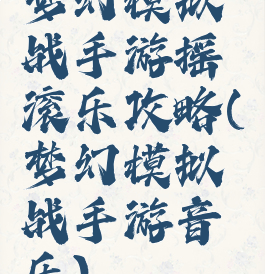 梦幻模拟
战手游摇
滚乐攻略(
梦幻模拟
战手游音
乐)